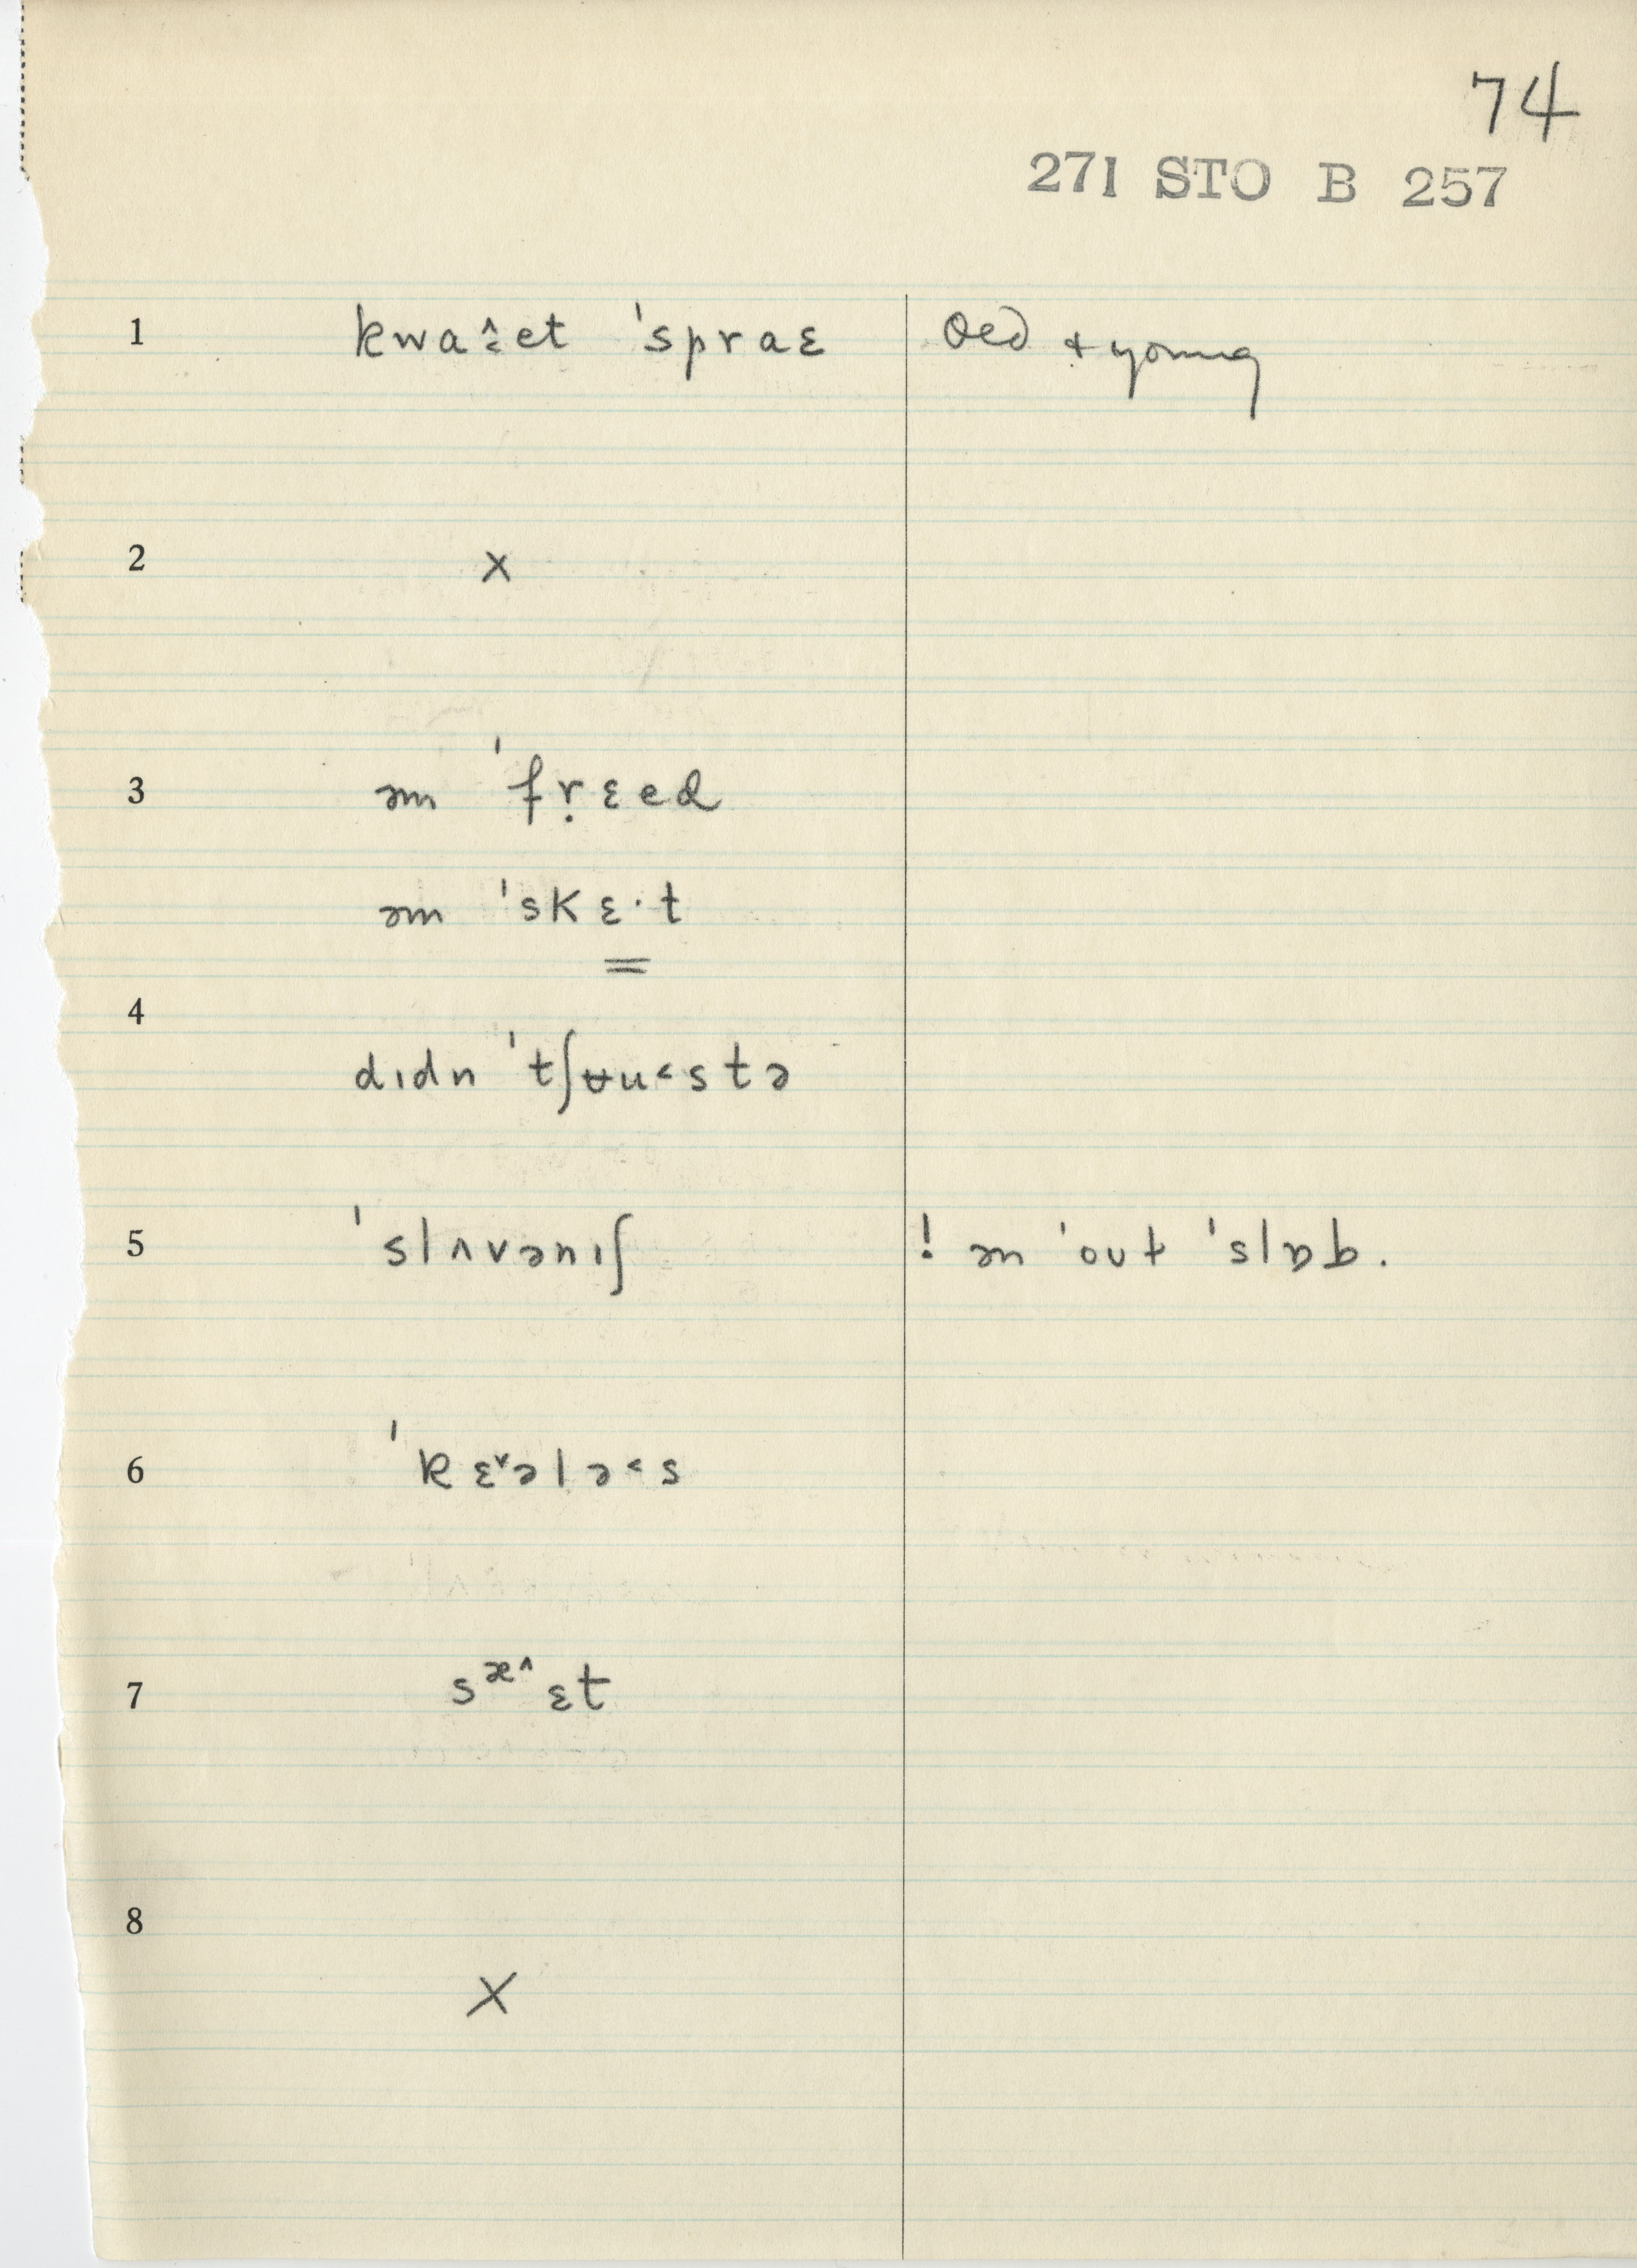 74
271 STO B 257
1 kwa˄̱et ˈspraɛ Old + young
2 x
3 əm ˈfṛɛed
əm ˈskɛ·t
4 dɪdn ˈtʃʉu˂stə
5 ˈslʌvənɪʃ ! ən ˈout ˈslɒb.
6 ˈkɛ˅ələ˂s
7 sᵆ˄ɛt
8 X